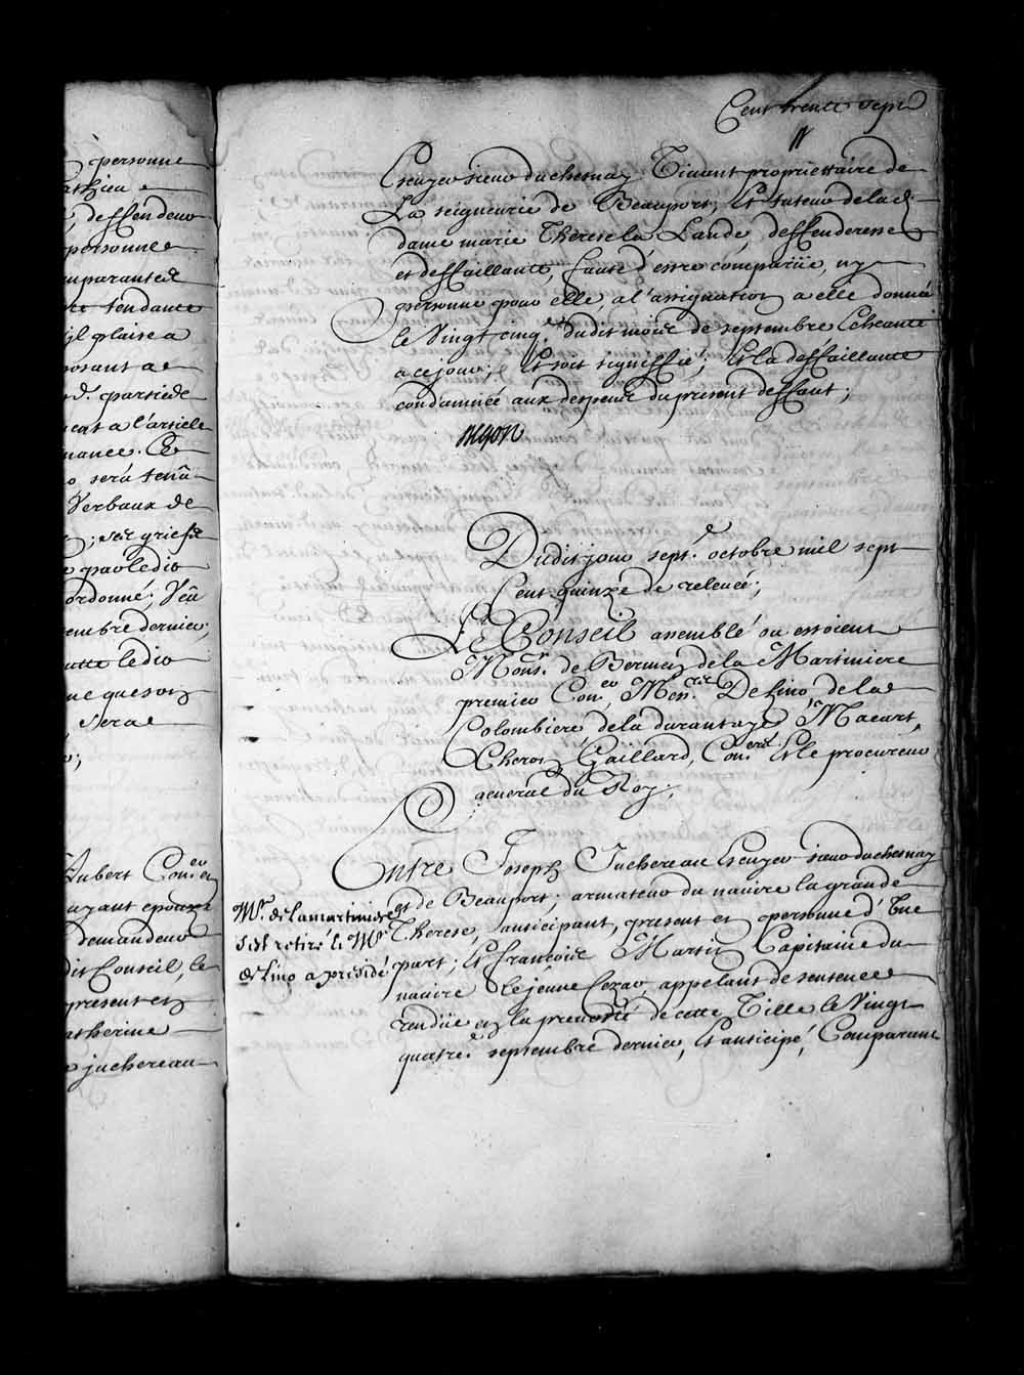 personne
athieu
, deffendeur
personne
mparante et
tendante
il plaise a
posant a
d. partie de
cat a l'article
nance. Et
sera tenû
Verbaux de
; ses griefs
par ledit
ordonné; Veu
embre dernier,
ledit
ne que soit
sera
Aubert Con.er et
ayant epouzé
demandeur
dit Conseil, le
present et
atherine
juchereau
Cent trente sept
Escuyer sieur duchesnay Vivant proprietaire de
La seigneurie de Beauport, Et tuteur de lad.
dame marie Therese la Lande, deffenderesse
et deffaillante, faute d'estre comparüe, ny
personne pour elle a l'assignation a elle donnée
le Vingt cinq.e dudit mois de septembre Escheante
a ce jour; Et soit signiffié; Et la deffaillante
condamnée aux despens du present deffaut;
Begon
Dudit jour sept.e octobre mil sept
Cent quinze de relevée;
Le Conseil assemblé ou estoient
Mons.r de Bermen de la Martiniere
premier Con.er, Mes.rs De Lino, de la
Colombiere, de la durantaye, Macart,
Cheron, Gaillard, Con.ers Et le procureur
general du Roy;
Entre Joseph Juchereau Escuyer sieur duchesnay
et de Beauport, armateur du navire la grande
Therese, anticipant, present en personne d'Une
part; Et françois Martin Capitaine du
navire Le jeune Cezar, appelant de sentence
rendüe en la prevosté de cette Ville le Vingt
quatre.e septembre dernier, Et anticipé, Comparant
Mr. de la martiniere
s'est retiré le Mr.
de Lino a presidé